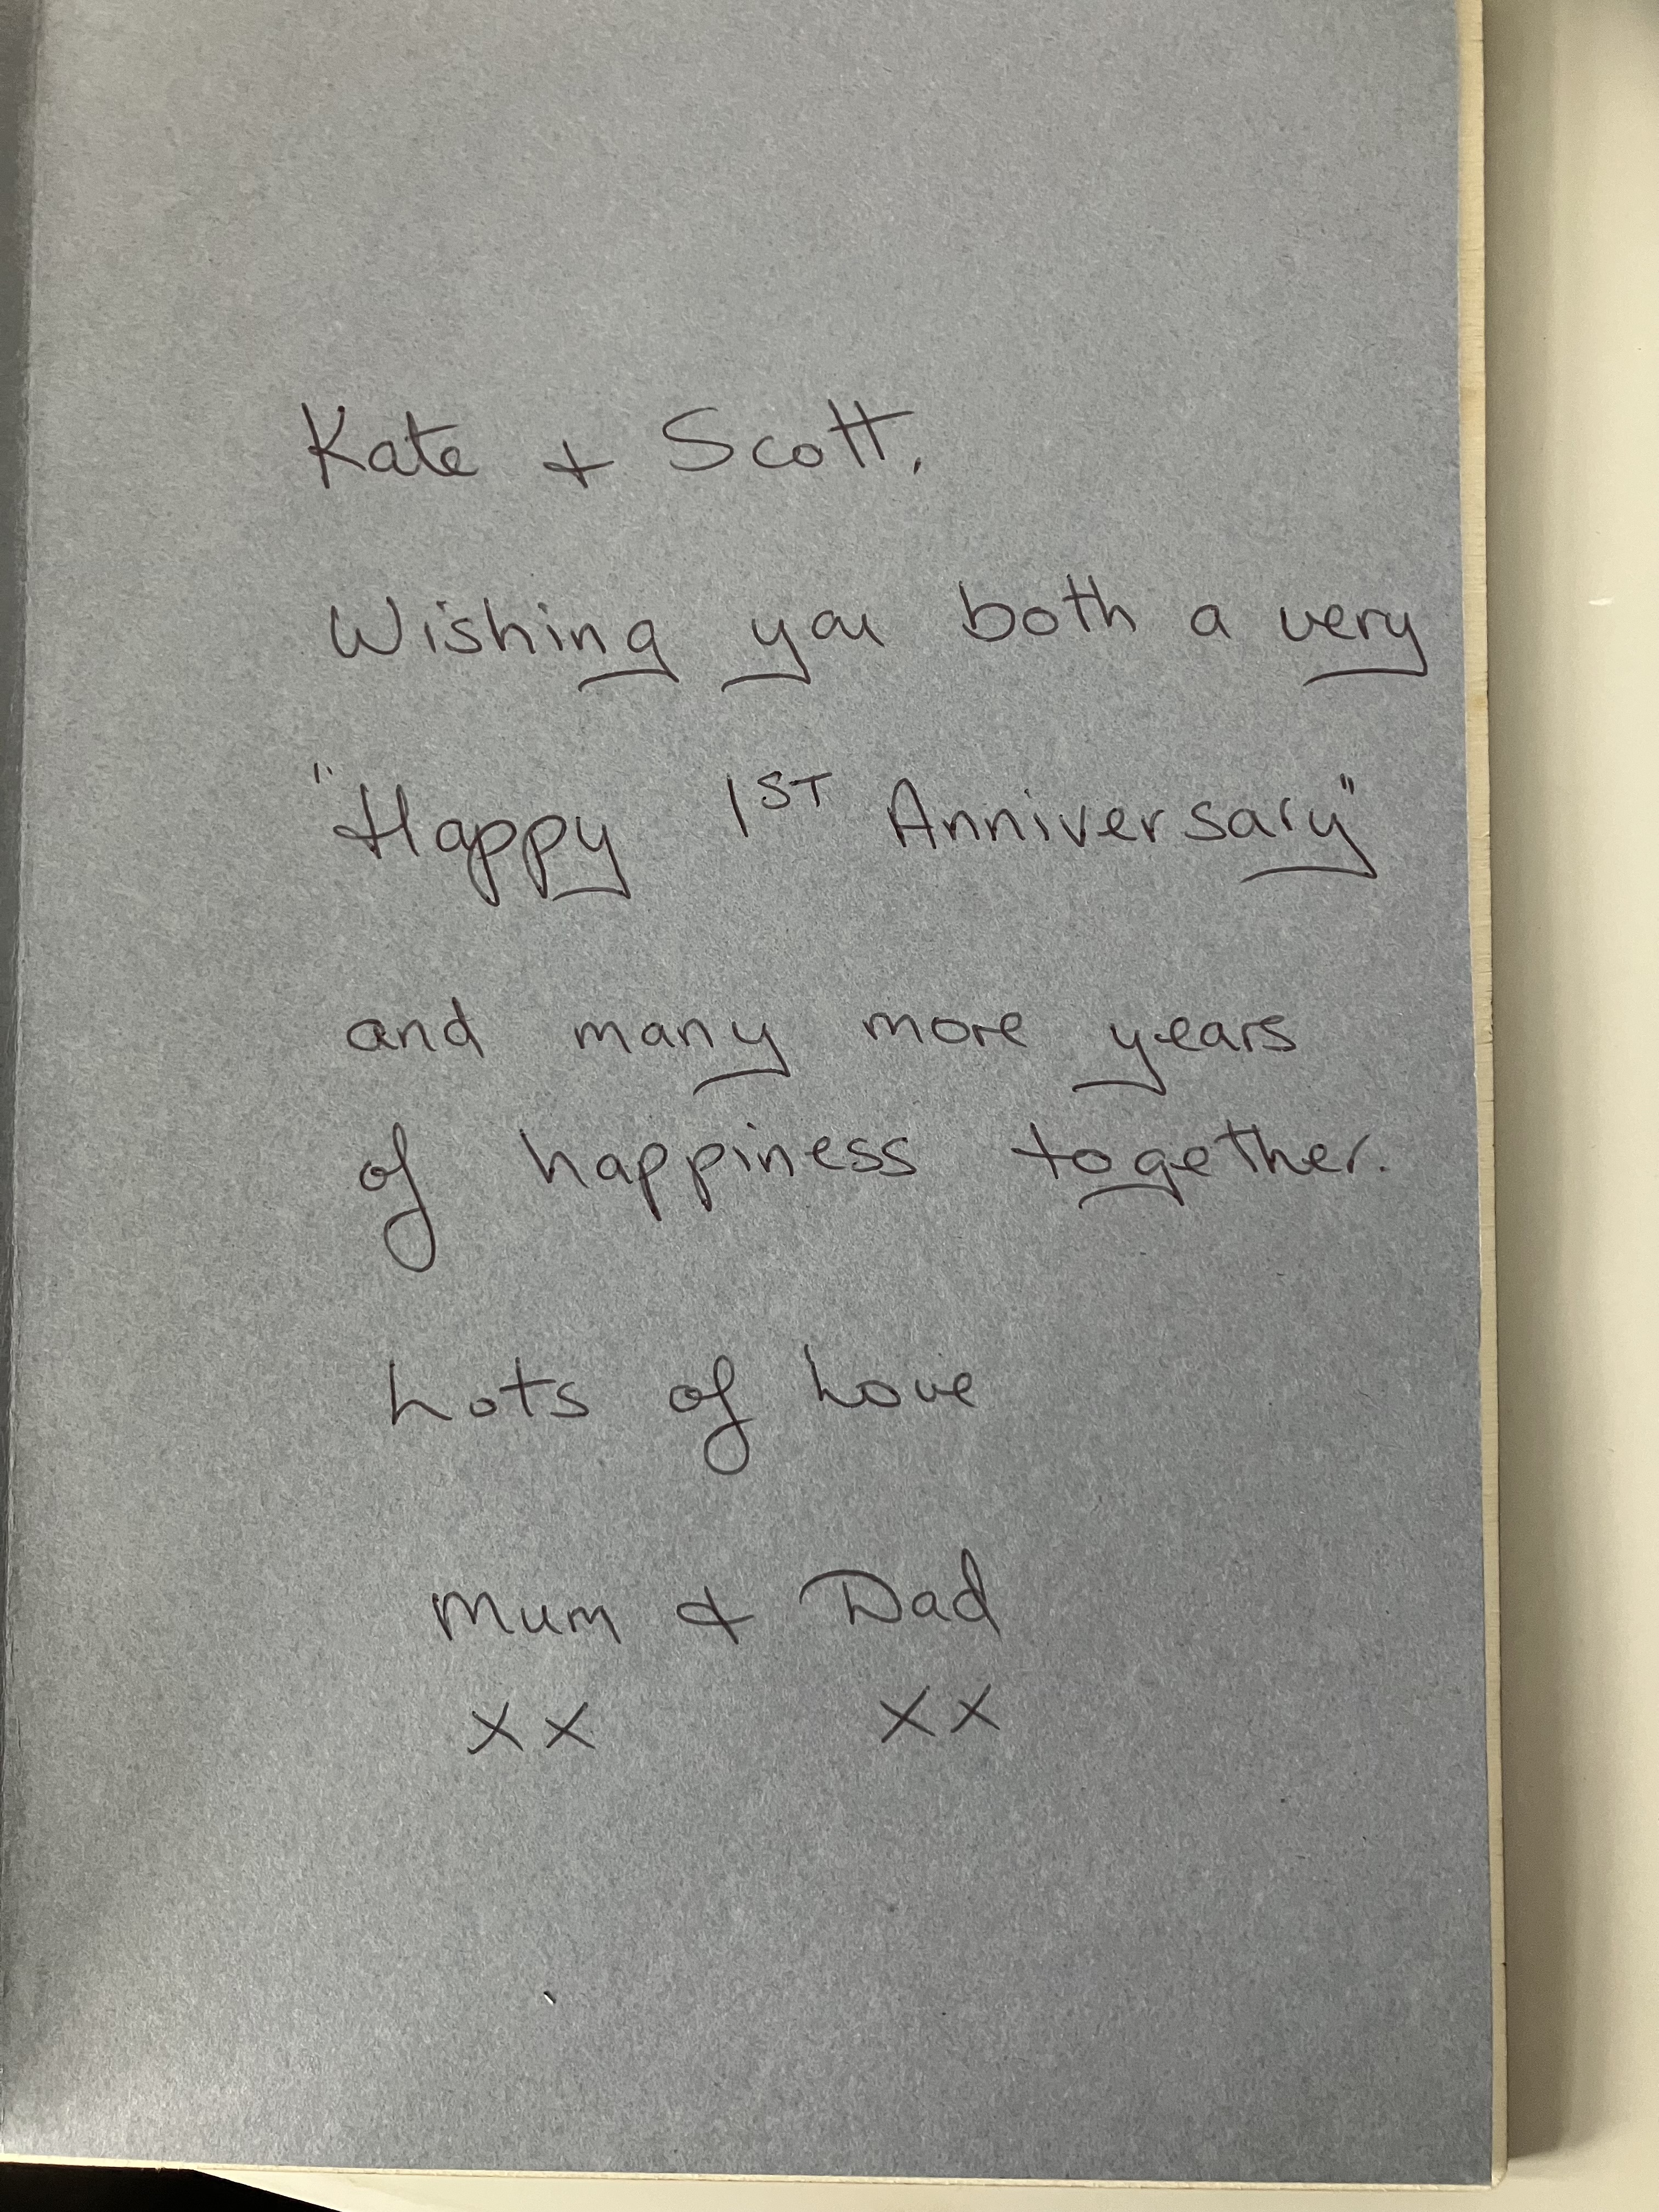 Kate + Scott,
Wishing you both a very
"Happy 1ST Anniversary"
and many more years
of happiness together.
Lots of Love
Mum & Dad
xx xx